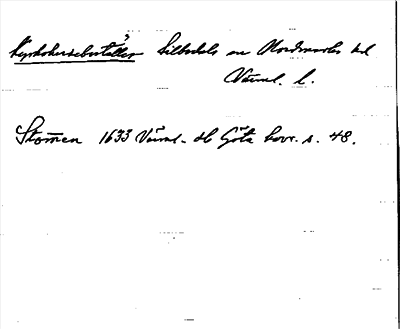 Kyrkoherdebostället tilledels av Nordmarks hd
Värml. l.
Stomen 1633 Värml. db Göta hovr. s. 48.